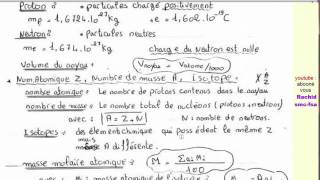 Proton : • particules chargé positivement
mp = 1,6724.10⁻²⁷ kg , e = 1,602.10⁻¹⁹ C
Neutron : • particules neutres
me = 1,674.10⁻²⁷ kg charge du Neutron est nulle
Volume du noyau = Vnoyau = Vatome/1000
Num.Atomique Z , Nombre de masse A , isotope :
nombre atomique : le nombre de protons contenus dans le noyau
nombre de masse : le nombre total de nucléons (protons+neutrons)
avec : A = Z+N N : nombre de neutrons.
Isotopes : des élément chimique qui possèdent le même Z
mais A différente.
masse molaire atomique : M = Σai Mi / 100
avec : masse atomique de l'isotope
youtube
abonne
vous
Rachid
smc-fsa